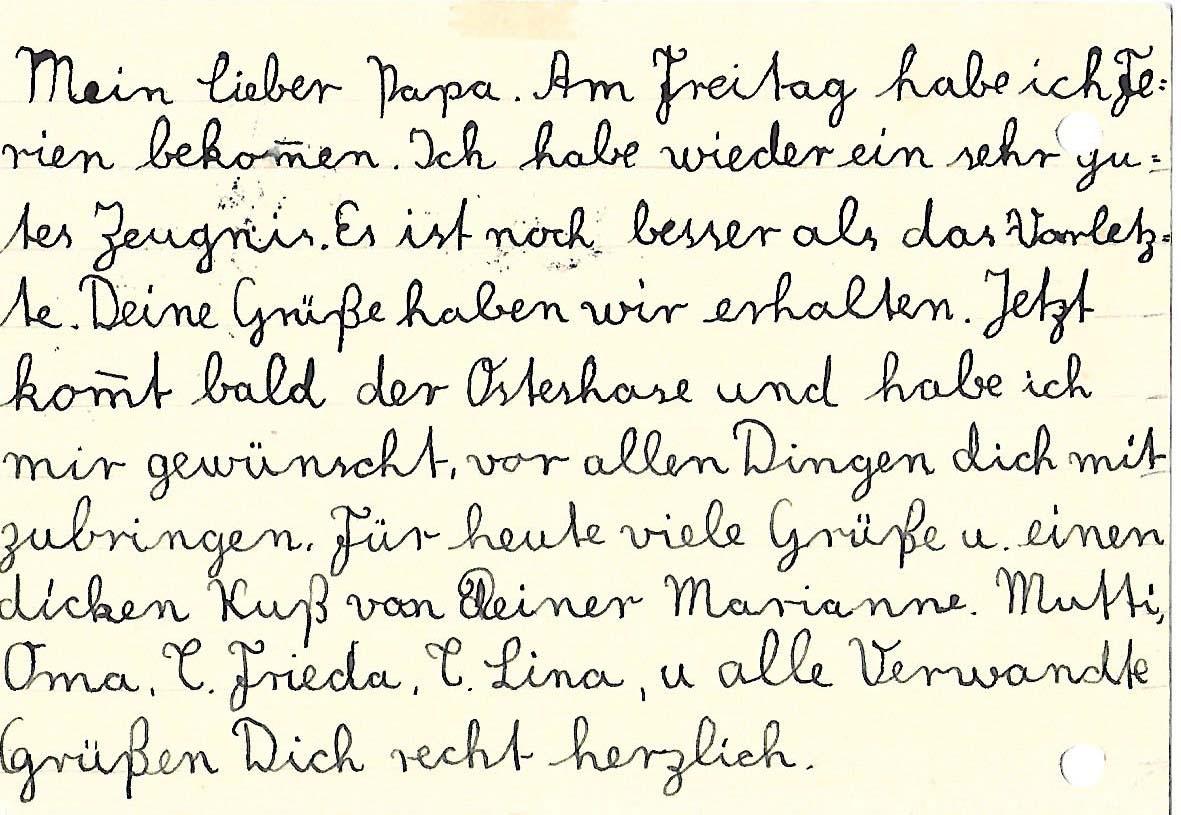 Mein lieber Papa. Am Freitag habe ich Fe=
rien bekom̅en. Ich habe wieder ein sehr gu=
tes Zeugnis. Es ist noch besser als das Vorletz=
te. Deine Grüße haben wir erhalten. Jetzt
kom̅t bald der Osterhase und habe ich
mir gewünscht, vor allen Dingen dich mit
zubringen. Für heute viele Grüße u. einen
dicken Kuß von Deiner Marianne. Mutti,
Oma, T. Frieda, T. Lina, u alle Verwandte
Grüßen Dich recht herzlich.